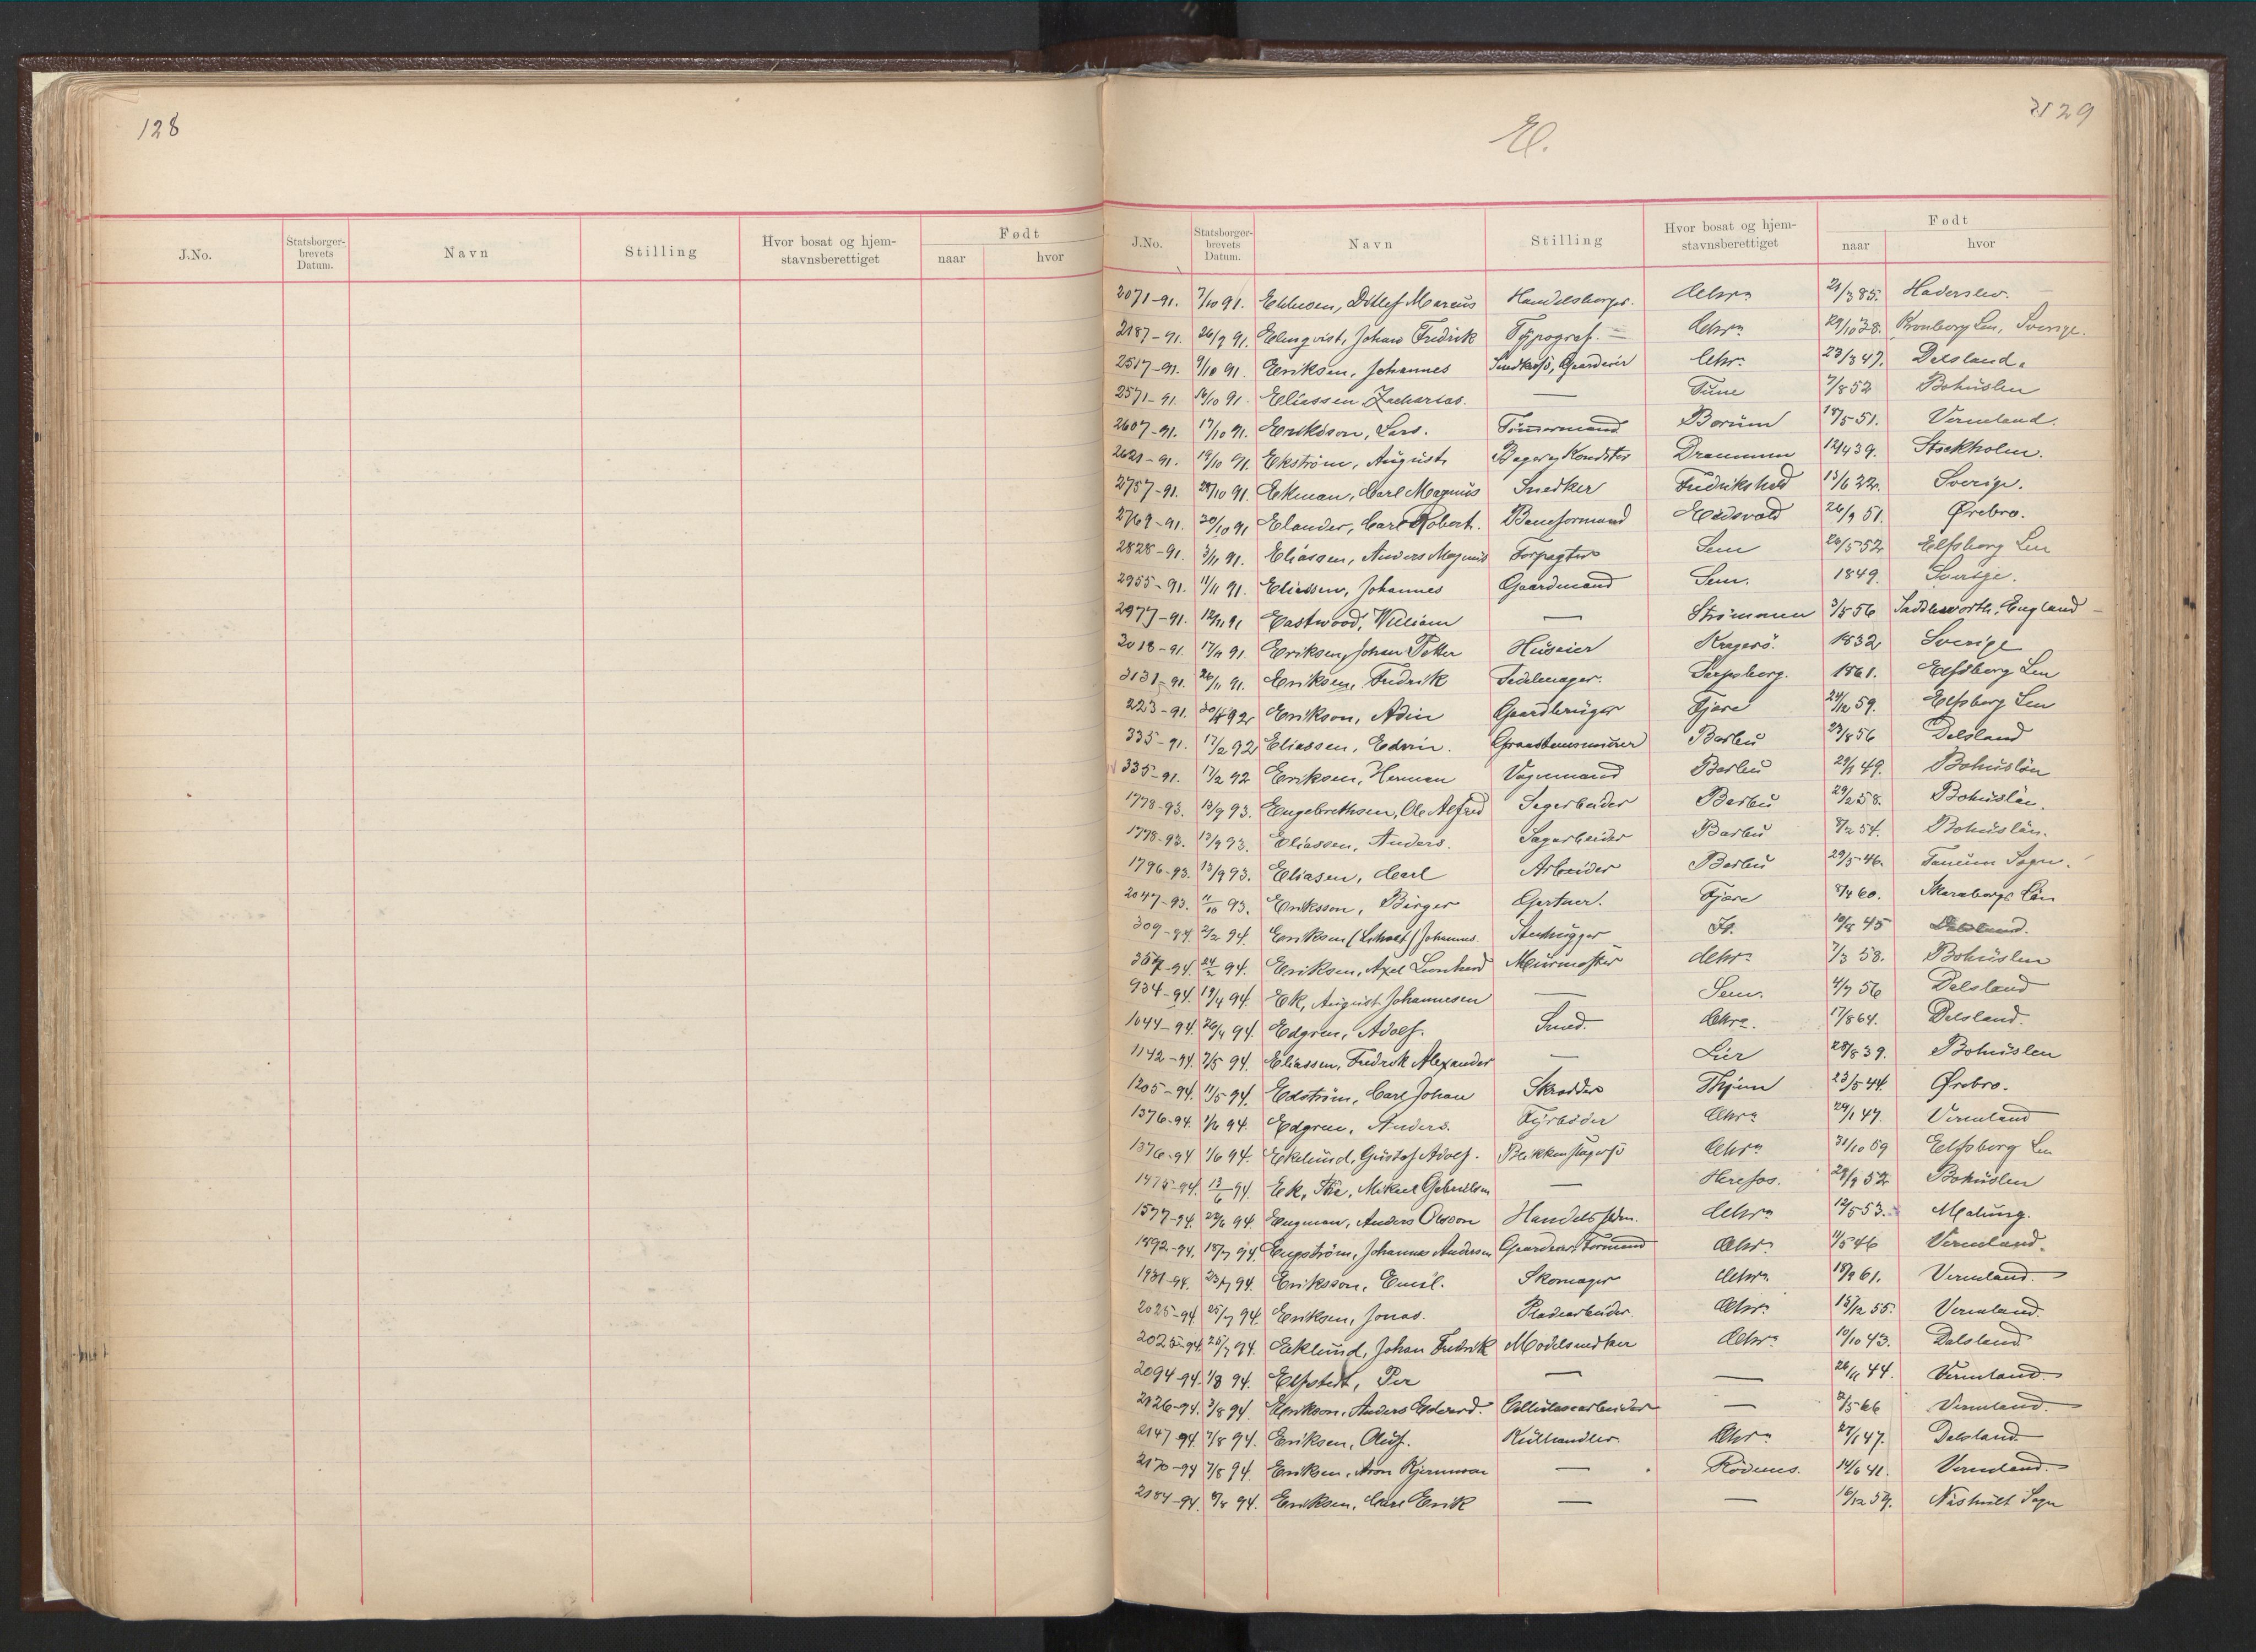 128
J.No. Statsborger-brevets Datum. Navn Stilling Hvor bosat og hjem-stavnsberettiget Født naar hvor
129
E.
J.No. Statsborger-brevets Datum. Navn Stilling Hvor bosat og hjem-stavnsberettiget Født naar hvor
2071-91. 7/10 91. Ditlef Marcus Handelsborger. Chra 85. Haderslev.
2187-91. 26/9 91. Elmqvist, Johan Fredrik Typograf. Chra 29/10 38. Kronberg Len, Sverige.
2517-91. 9/10 91. Eriksen, Johannes Gaardeier Chra 23/3 47. Dalsland.
2571-91. 14/10 91. Eliassen Zacharias. — Tune 7/8 52 Bohuslen
2607-91. 17/10 91. Erikson, Lars. Tømmermand Borum 18/5 51. Vermland.
2621-91. 19/10 91. Ekström, August Bager og Konditor Drammen 12/4 39. Stockholm.
2757-91. 29/10 91. Ekman, Carl Magnus Snedker Fredrikshald 13/6 22. Sverige.
2769-91. 30/10 91 Elander, Carl Robert. Baneformand Eidsvold 26/9 51. Ørebro.
2828-91. 3/11 91. Eliassen, Anders Magnus Forpagter Sem 20/5 52 Elfsborg Len
2955-91. 11/11 91. Eliassen, Johannes Gaardmand Sem. 1849. Sverige.
2977-91. 12/11 91 Eastwood, William — Strømmen 3/5 56 Saddleworth. England
3018-91. 17/11 91. Eriksen, Johan Petter Huseier Kragerö. 1832 Sverige
3131-91. 26/11 91. Eriksen, Fredrik Sadelmager. Sarpsborg. 1861. Elfsborg Len
223-91. 92 Erikson, Adin Gaardbruger Fjære 24/12 59. Elfsborg Len
335-91. 17/2 92 Eliassen, Edvin. Barbu 23/8 56 Dalsland
335-91. 17/2 92 Eriksen, Herman Vognmand Barbu 49. Bohuslän
1778-93. 13/9 93. Engebrethsen, Ole Alfred Sagarbeider Barbu 29/2 58. Bohuslän.
1778-93. 13/9 93. Eliassen, Anders. Sagarbeider Barbu 8/2 54. Bohuslän.
1796-93. 13/9 93. Eliasen, Carl Arbeider Barbu 29/5 46. Tanum Sogn.
2047-93. 11/10 93. Eriksson, Birger Gartner. Fjære 8/4 60. Skaraborgs Län
309-94. 2/2 94. Eriksen Johannes. Stenhugger Fr. 10/8 45 Dalsland.
357-94. 24/2 94. Eriksen, Axel Leonhard Murmester Chra 7/3 58. Bohuslen
934-94. 19/4 94. Ek, August Johannesen — Sem. 4/9 56 Dalsland
1044-94. 26/4 94. Edgren, Adolf. Smed. Chra. 17/8 64. Dalsland.
1142-94. 7/5 94. Eliassen, Fredrik Alexander — Lier 28/8 39. Bohuslen
1205-94. 11/5 94. Edström, Carl Johan Skrædder 23/5 44. Ørebro.
1376-94. 1/6 94. Edgren, Anders. Fyrbøder Chra 29/1 47. Vermland
1376-94 1/6 94. Ekelund, Gustaf Adolf. Blikkenslagersv Chra 31/10 59 Elfsborg Len
1475-94. 13/6 94. Ek, Mikael Gabrielsen — Herefos. 29/9 52 Bohuslen
1577-94. 22/6 94. Engman, Anders Olsson Handelsbm. Chra 12/5 53. Malung.
1892-94. 18/7 94. Engström, Johannes Andersen Gaardeier, Formand Chr. 11/5 46 Vermland.
1931-94. 23/7 94. Eriksson, Emil. Skomager Chra. 18/9 61. Vermland.
2025-94 25/7 94. Eriksen, Jonas. Pladsarbeider. Chra 15/12 55. Vermland.
2025-94 25/7 94. Eeklund, Johan Fredrik Modelsnedker Chra 10/10 43. Dalsland
2094-94. 1/8 94. Elfstedt, Per — — 26/11 44. Vermland.
2126-94. 3/8 94. Erikson, Anders Edvard. Cellulosearbeider — 2/5 66 Vermland.
2147-94 7/8 94. Eriksen, Oluf. Kulhandler. Chra 27/1 47. Dalsland.
2170-94 7/8 94. Eriksen, Aron — Rødenes. 14/6 41. Vermland.
2184-94. 8/8 94. Eriksen, Carl Erik — — 16/12 59. Näshult Sogn